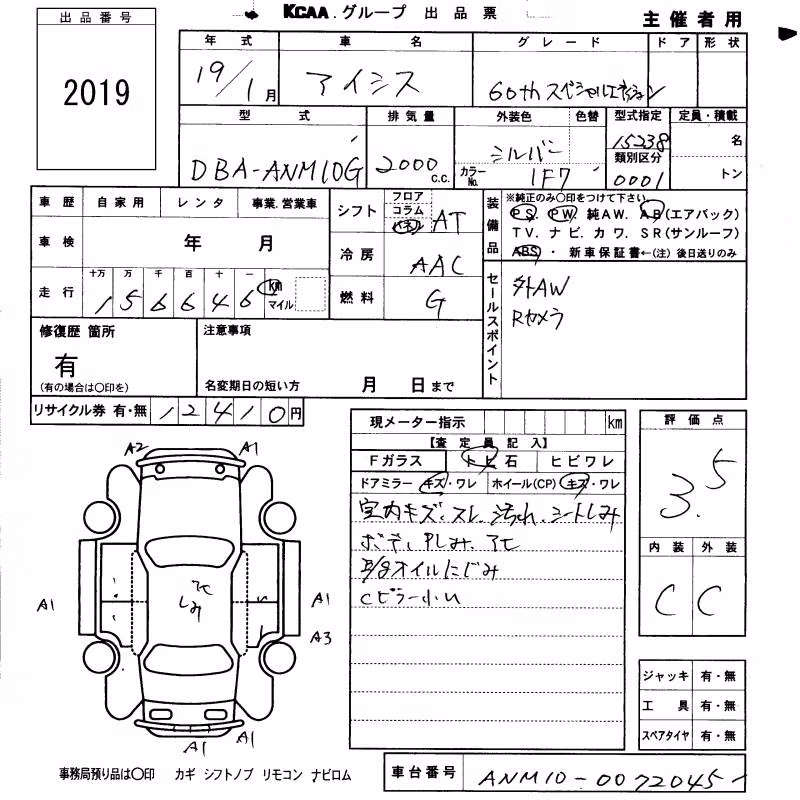 KCAA. グループ 出品票
主催者用
出品番号
2019
年式 車名 グレード ドア 形状
19/1月 アイシス 60thスペシャルエディション
型式 排気量 外装色 色替 型式指定 定員・積載
DBA-ANM10G 2000 c.c. シルバー カラーNo. 1F7 15238 名
類別区分
0001 トン
車歴 自家用 レンタ 事業.営業車
車検 年 月
走行 十万 万 千 百 十 一
156646 km マイル
シフト フロア コラム パネル AT
冷房 AAC
燃料 G
装備品
※純正のみ○印をつけて下さい。
PS. PW. 純AW. AB(エアバック)
TV. ナビ. カワ. SR(サンルーフ)
ABS ・ 新車保証書←(注)後日送りのみ
セールスポイント
外AW
Rカメラ
修復歴 箇所
有
(有の場合は○印を)
注意事項
名変期日の短い方 月 日まで
リサイクル券 有・無 12410円
現メーター指示 km
【査定員記入】
Fガラス トビ石 ヒビワレ
ドアミラー キズ・ワレ ホイール(CP) キズ・ワレ
室内キズ、スレ、汚れ、シートしみ
オイルにじみ
Cピラー小U
評価点
3.5
内装 外装
C C
A2 A1
A1 A1
A3
A1 A1
しみ
ジャッキ 有・無
工具 有・無
スペアタイヤ 有・無
事務局預り品は○印 カギ シフトノブ リモコン ナビロム
車台番号 ANM10-0072045